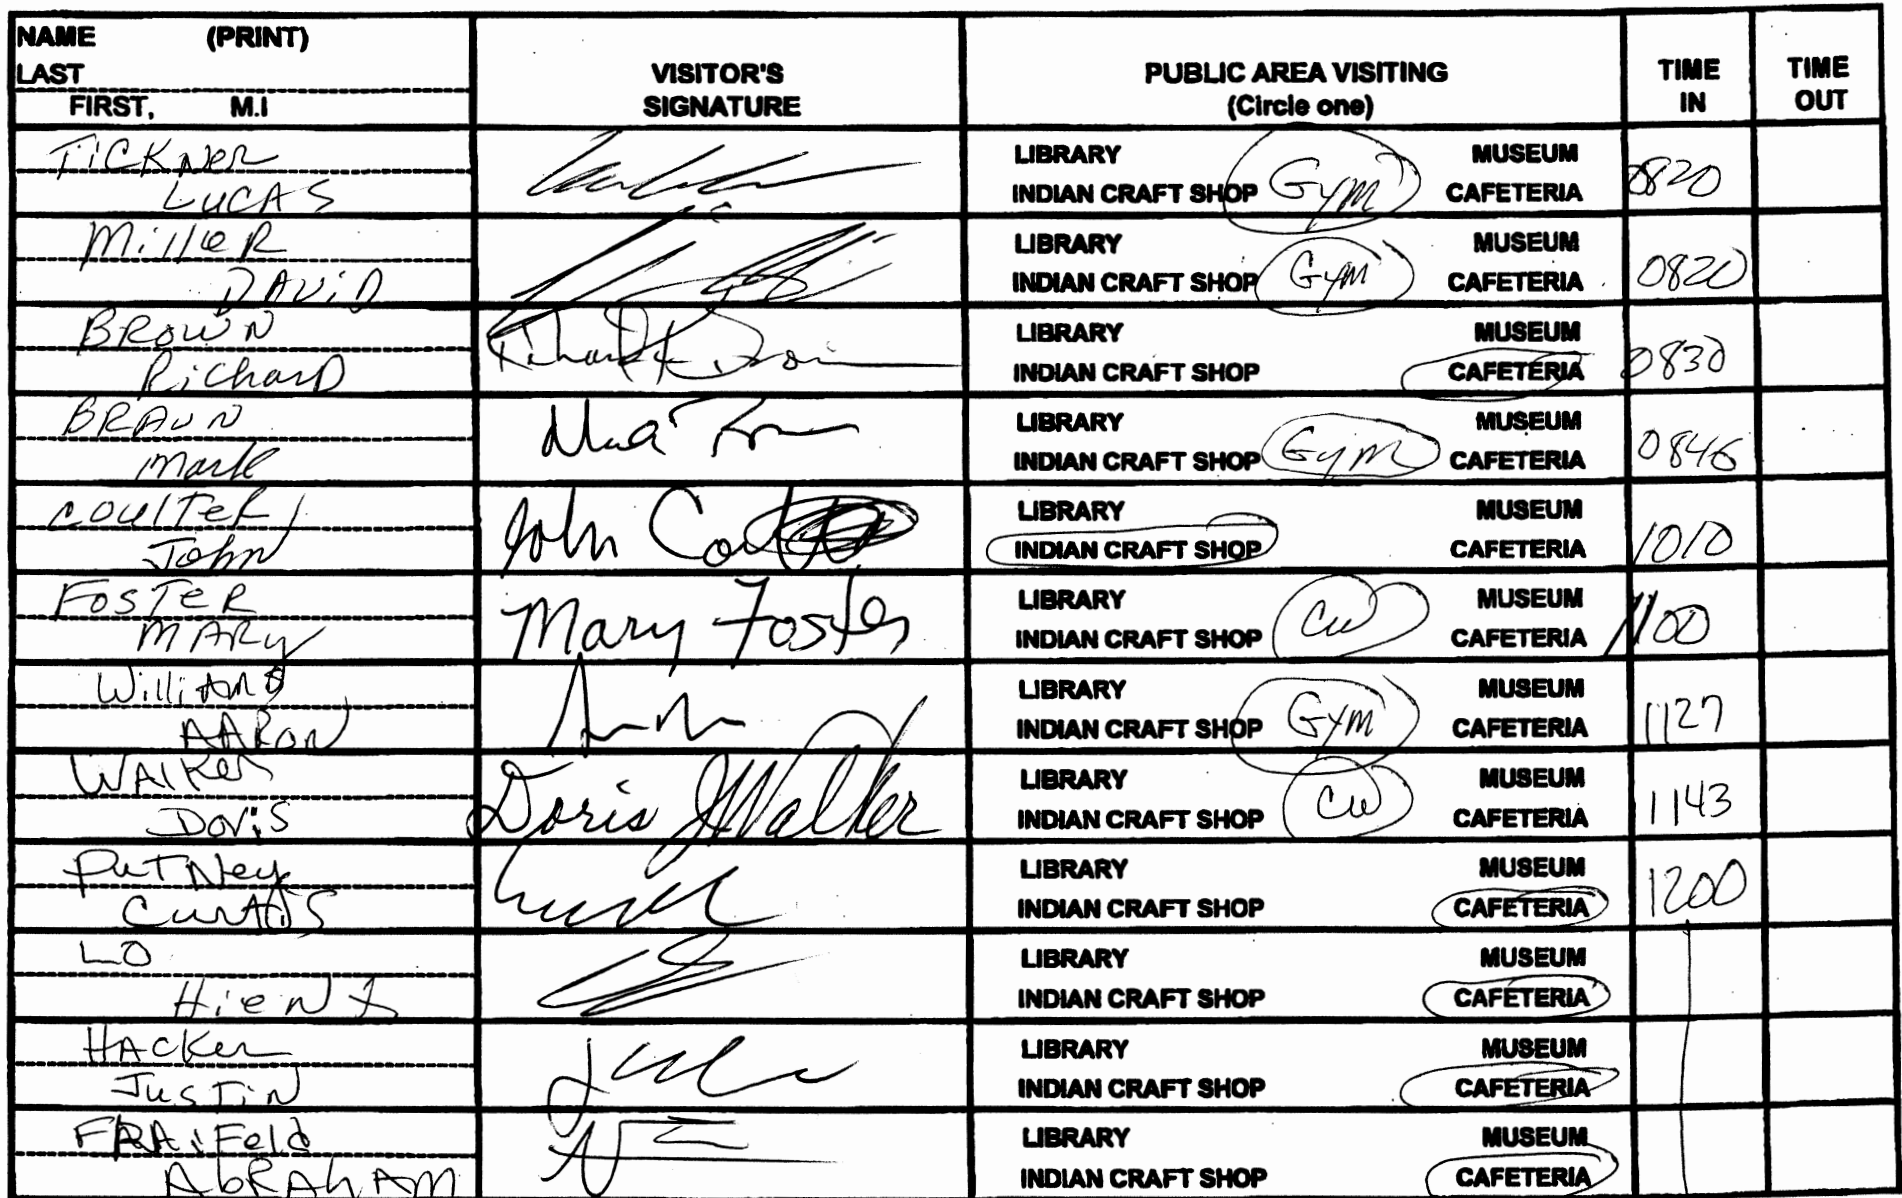 NAME (PRINT)
LAST
FIRST, M.I
VISITOR'S
SIGNATURE
PUBLIC AREA VISITING
(Circle one)
TIME
IN
TIME
OUT
TICKNER
LUCAS
LIBRARY MUSEUM
INDIAN CRAFT SHOP Gym CAFETERIA
0820
Miller
DAViD
LIBRARY MUSEUM
INDIAN CRAFT SHOP Gym CAFETERIA
0820
BROWN
RicharD
Richard K Brown
LIBRARY MUSEUM
INDIAN CRAFT SHOP CAFETERIA
0830
BRAUN
Mark
LIBRARY MUSEUM
INDIAN CRAFT SHOP Gym CAFETERIA
0846
COULTER
John
John
LIBRARY MUSEUM
INDIAN CRAFT SHOP CAFETERIA
1010
FOSTER
MARy
Mary Foster
LIBRARY MUSEUM
INDIAN CRAFT SHOP CU CAFETERIA
1100
WilliAMS
AARON
LIBRARY MUSEUM
INDIAN CRAFT SHOP Gym CAFETERIA
1127
WAlKer
Doris
Doris J Walker
LIBRARY MUSEUM
INDIAN CRAFT SHOP CU CAFETERIA
1143
PUTNey
CurtiS
LIBRARY MUSEUM
INDIAN CRAFT SHOP CAFETERIA
1200
LO
HieN
LIBRARY MUSEUM
INDIAN CRAFT SHOP CAFETERIA
HACKer
JusTiN
LIBRARY MUSEUM
INDIAN CRAFT SHOP CAFETERIA
FRAiFeld
AbRAhAM
LIBRARY MUSEUM
INDIAN CRAFT SHOP CAFETERIA